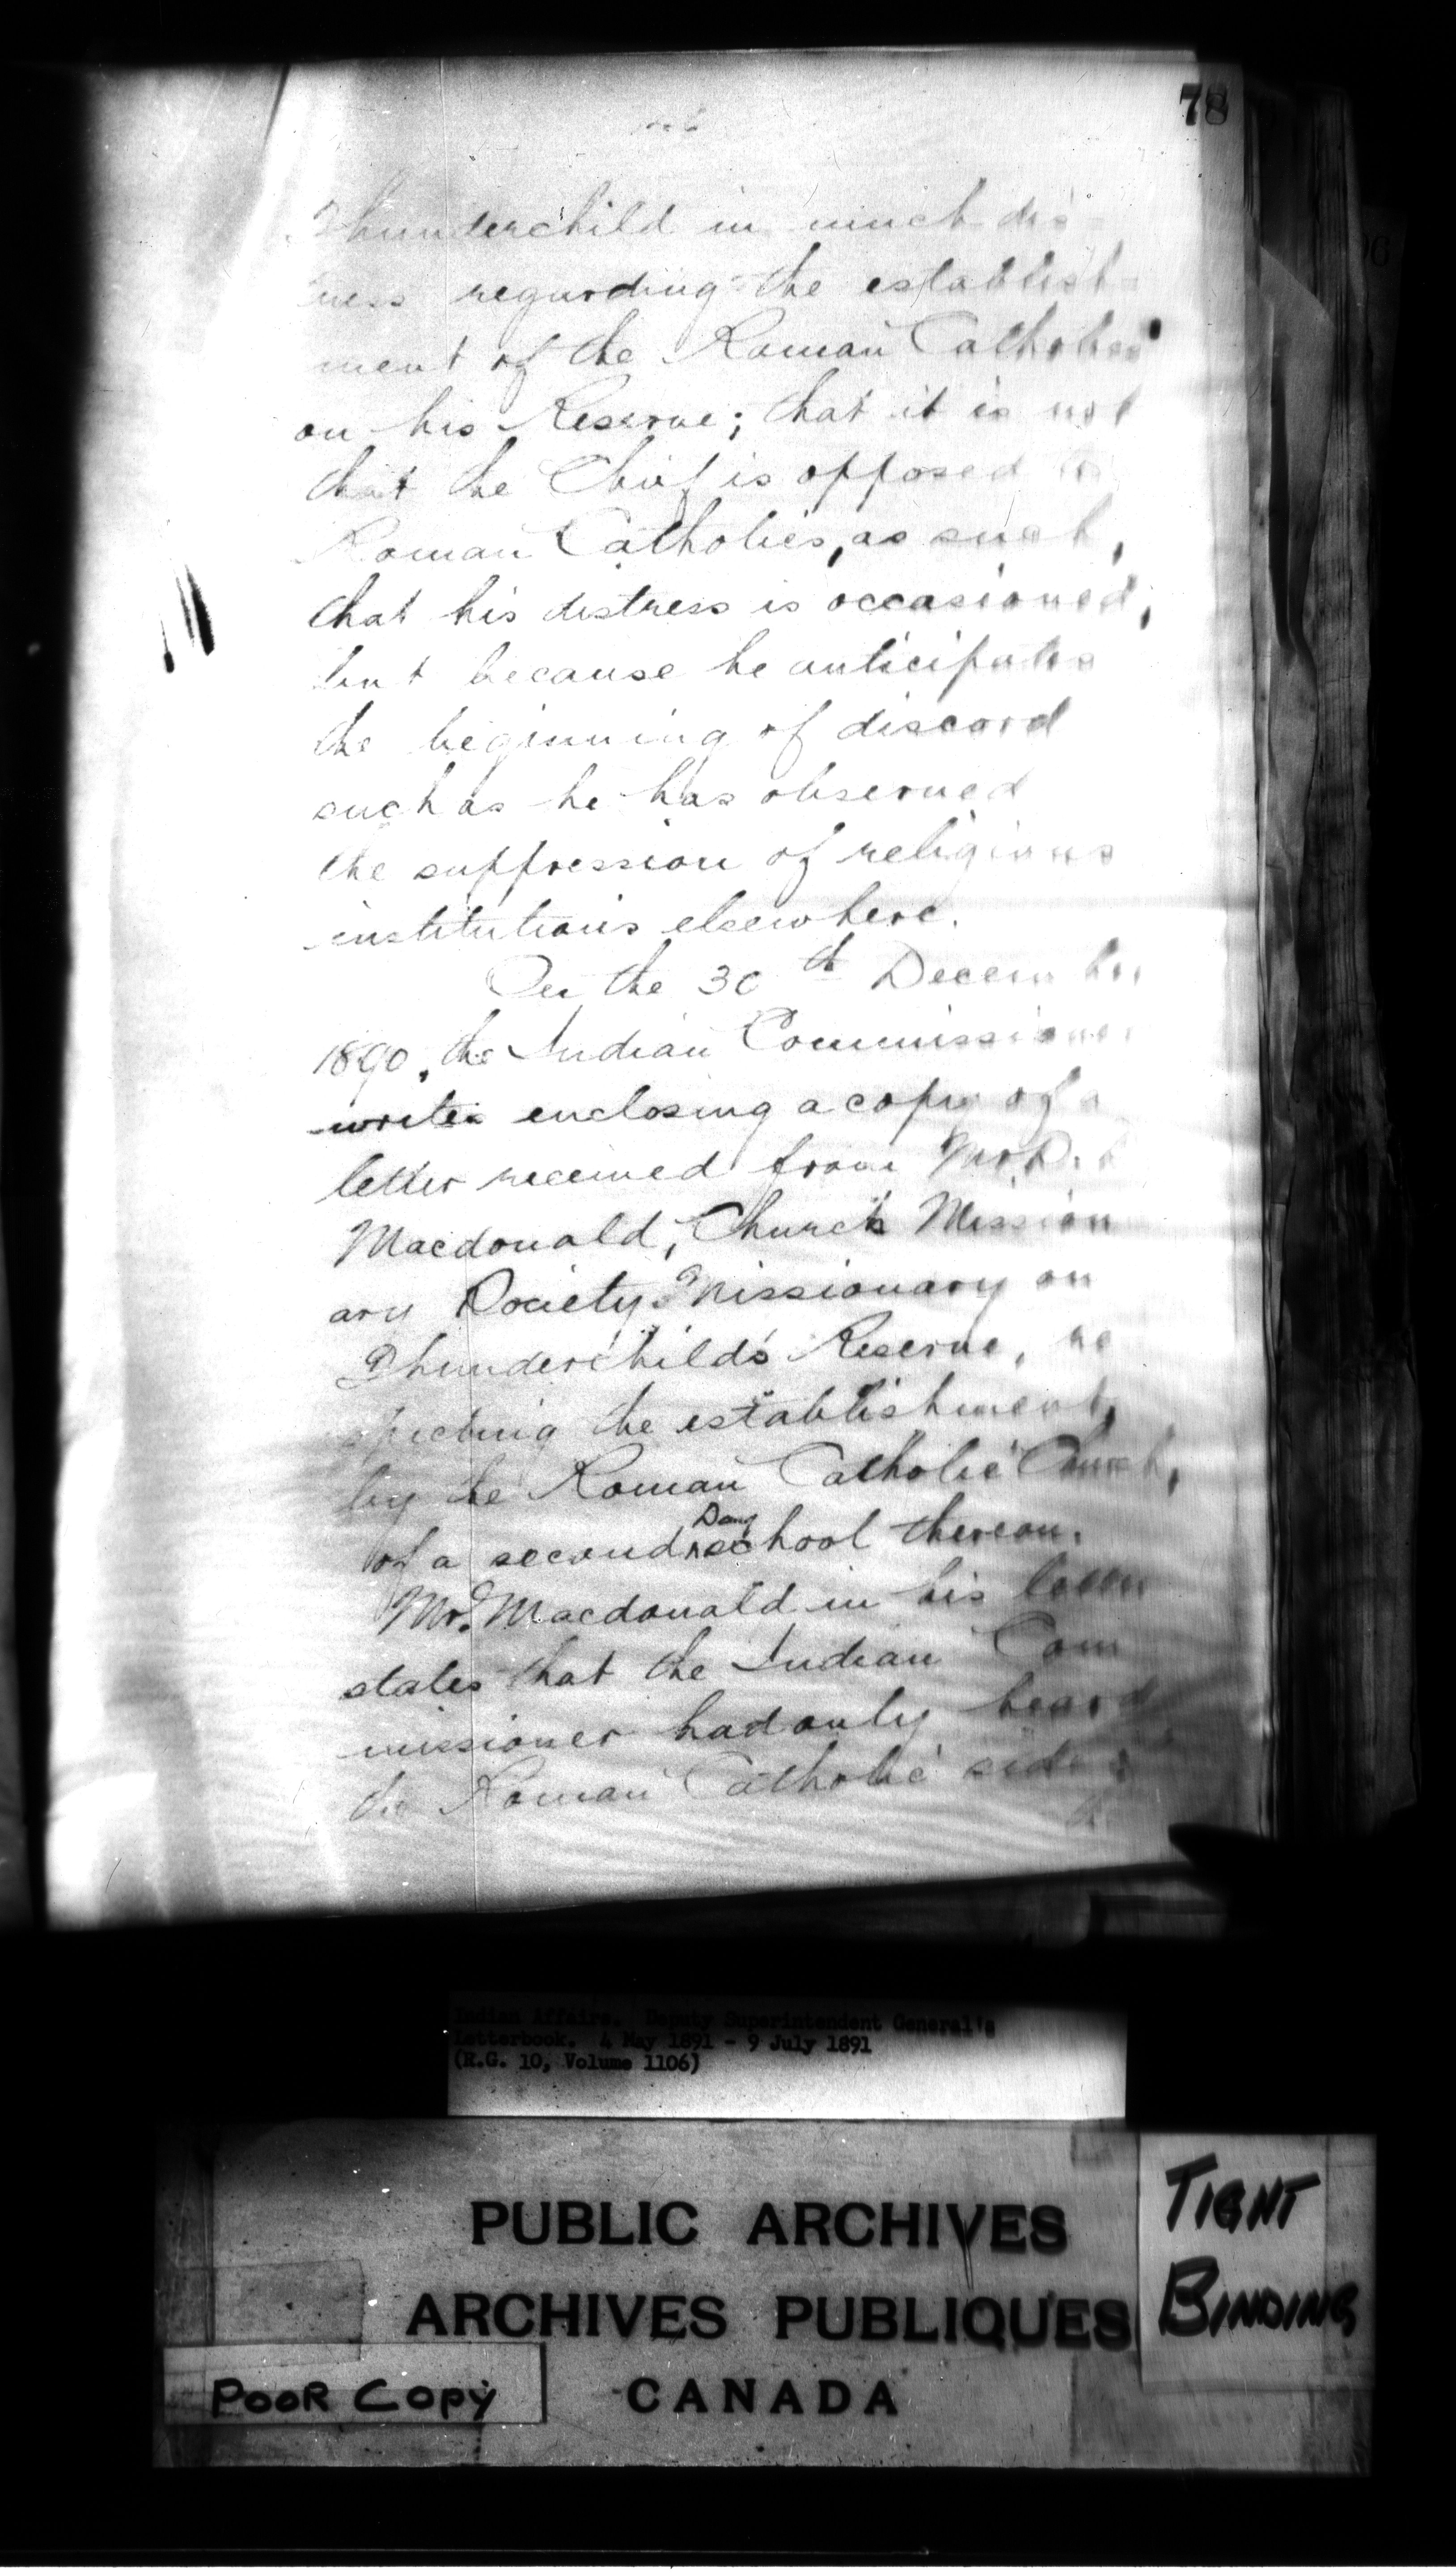 78
Thunderchild in much dis-
tress regarding the establish-
ment of the Roman Catholics
on his Reserve; that it is not
that the Chief is opposed to
Roman Catholics, as such,
that his distress is occasioned,
but because he anticipates
the beginning of discord
such as he has observed
the suppression of religious
institutions elsewhere.
On the 30th December
1890, the Indian Commissioner
writes enclosing a copy of a
letter received from Mr D.
Macdonald, Church Mission
ary Society Missionary on
Thunderchild's Reserve, re
specting the establishment,
by the Roman Catholic Church,
Day
of a second school thereon.
Mr. Macdonald in his letter
states that the Indian Com
missioner had only heard
the Roman Catholic side;
Indian Affairs. Deputy Superintendent General's
Letterbook. 4 May 1891 - 9 July 1891
(R.G. 10, Volume 1106)
PUBLIC ARCHIVES
ARCHIVES PUBLIQUES
CANADA
TIGHT
BINDING
POOR COPY